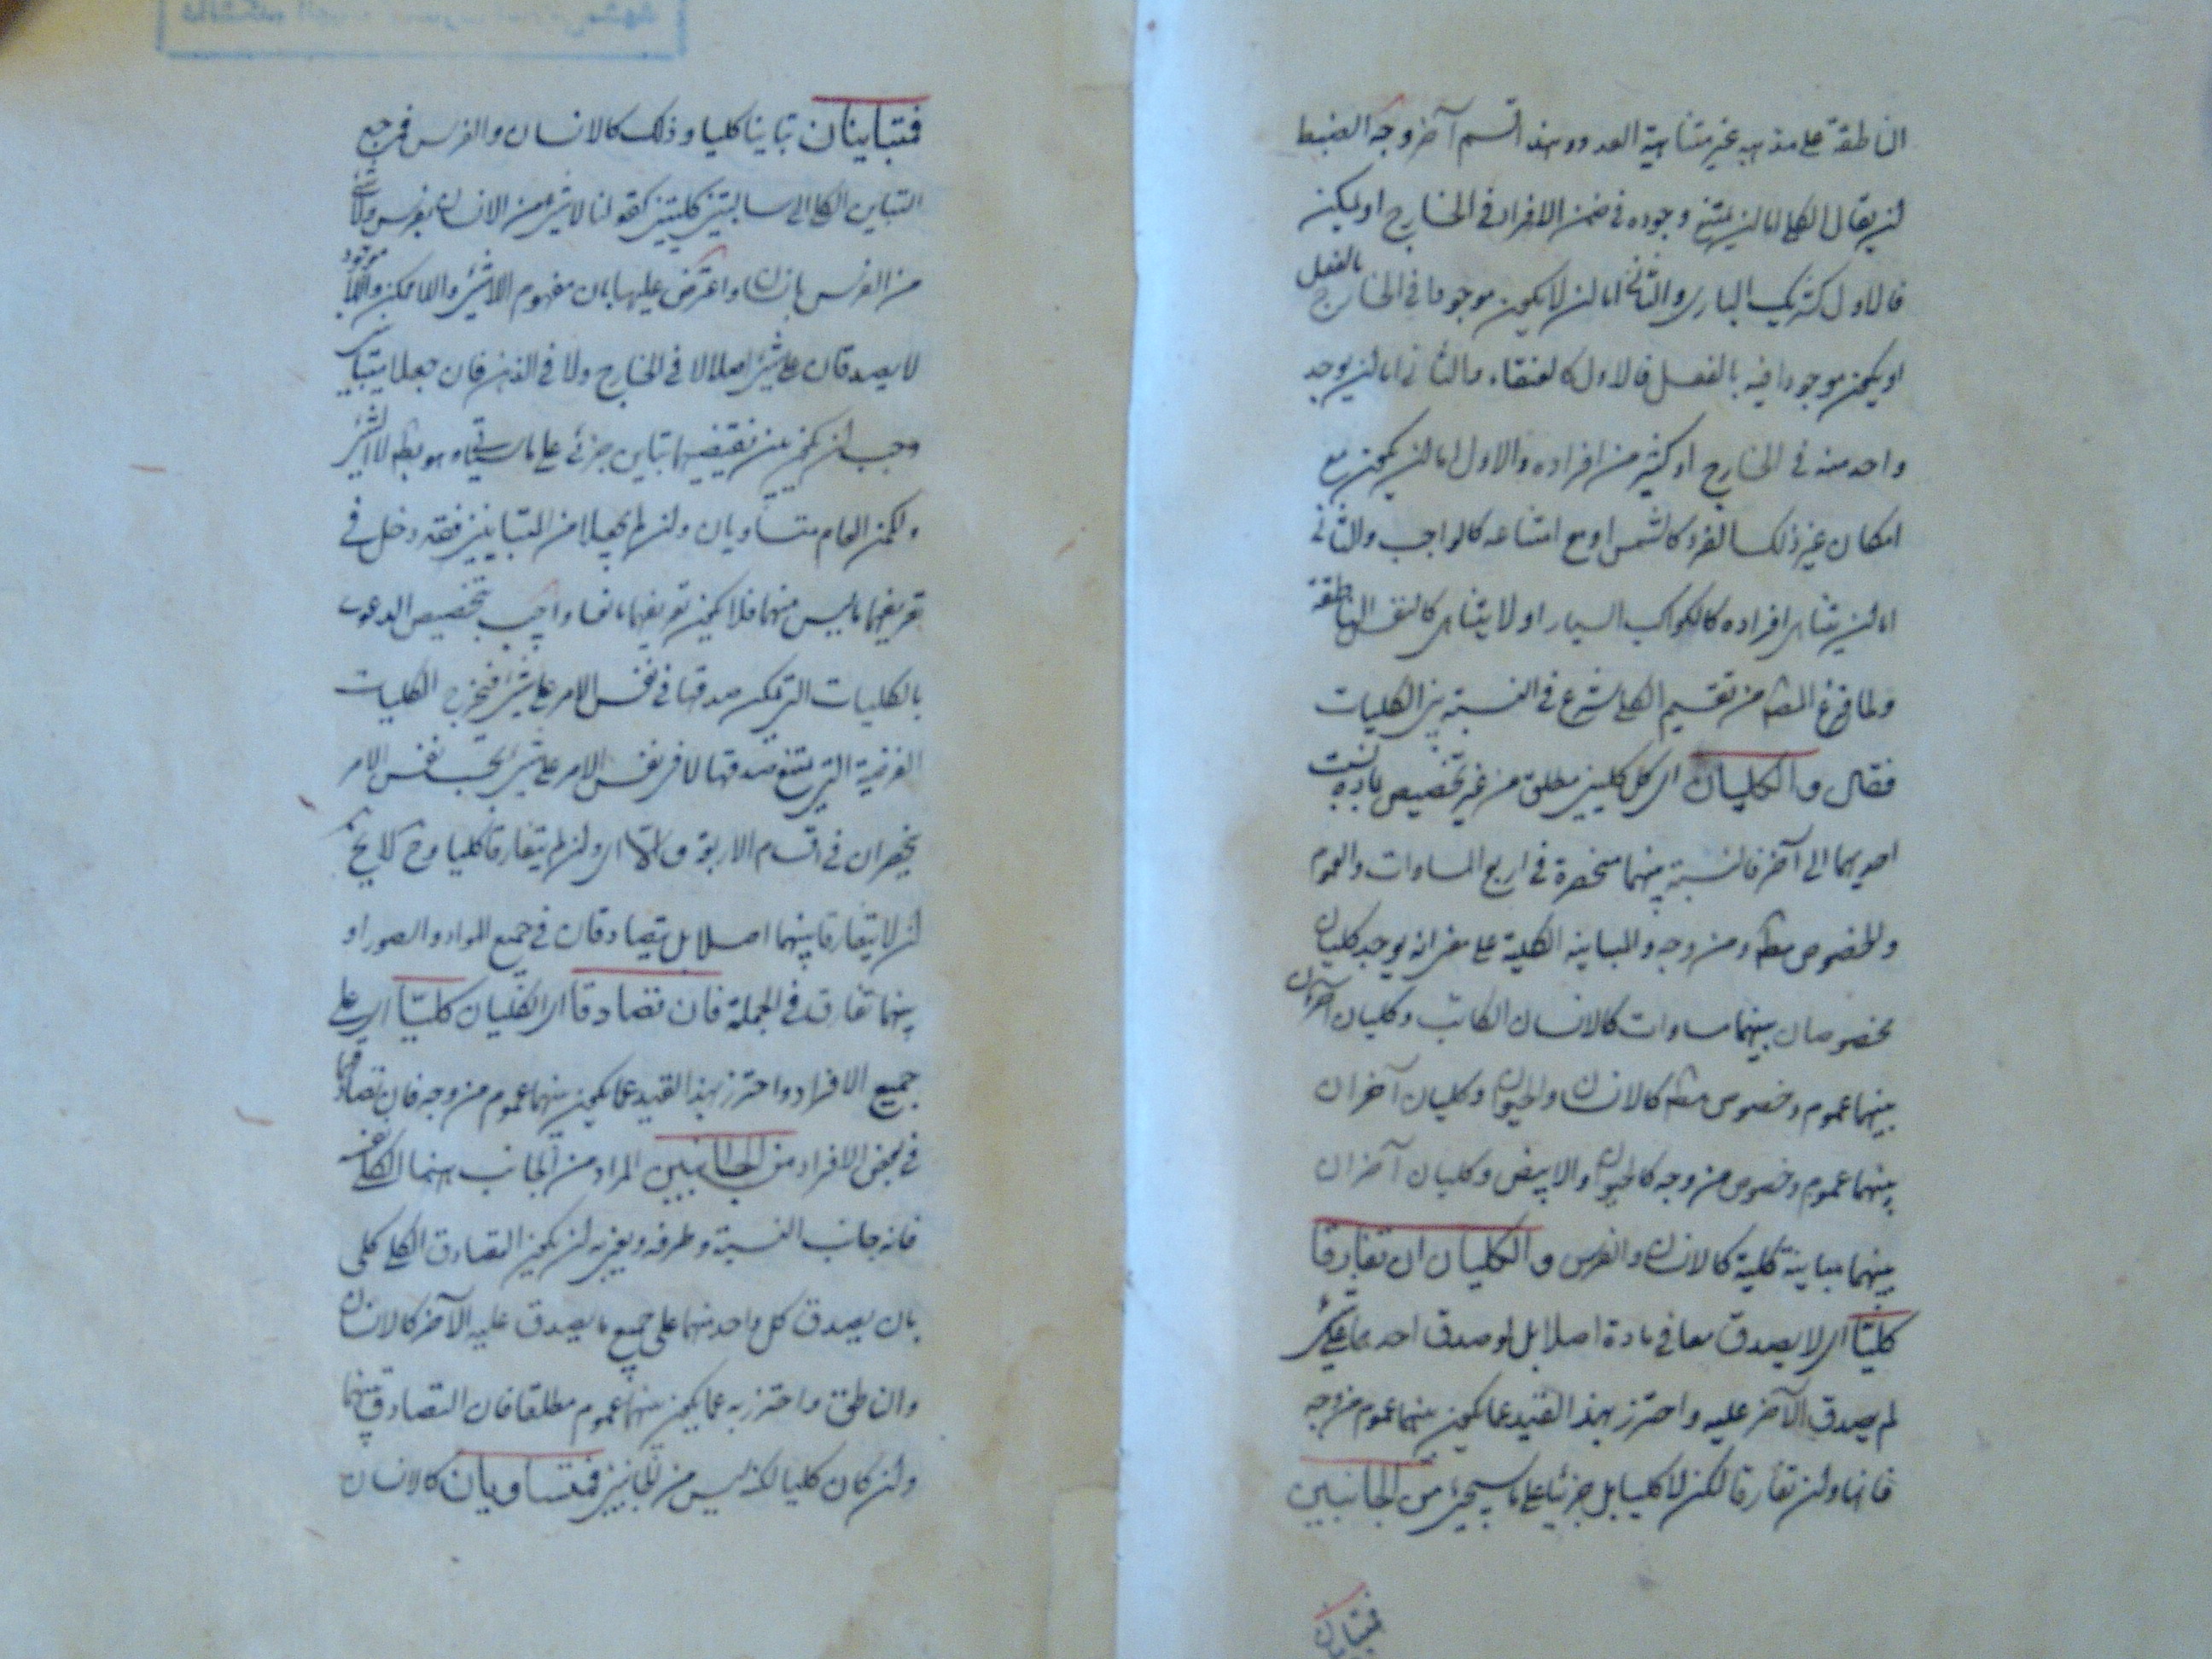 الناطقة على مذهبه غير متناهية العدد وهذا قسم آخر وجه الضبط
ان يقال الكلى اما ان يمتنع وجوده فى ضمن الافراد فى الخارج او يمكن
فالاول كشريك البارى والثانى اما ان لا يكون موجودا فى الخارج بالفعل
او يكون موجودا فيه بالفعل فالاول كالعنقاء والثانى اما ان يوجد
واحد منه فى الخارج او كثير من افراده والاول اما ان يكون مع
امكان غير ذلك الفرد كالشمس او مع امتناعه كالواجب والثانى
اما ان يتناهى افراده كالكواكب السيار او لا يتناهى كالنفس الناطقة
ولما فرغ المصـ من تقسيم الكلى شرع فى النسبة بين الكليات
فقال والكليان اى كل كليين مطلق من غير تخصيص بمادة نسبت
احديهما الى آخر فالنسبة بينهما منحصرة فى اربع المساوات والعموم
والخصوص مط ومن وجه والمباينه الكلية على معنى انه يوجد كليان
مخصوصان بينهما مساوات كالانسان الكاتب وكليان آخران
بينهما عموم وخصوص مط كالانسان والحيوان وكليان آخران
بينهما عموم وخصوص من وجه كالحيوان والابيض وكليان آخران
بينهما مباينة كلية كالانسان والفرس والكليان ان تفارقا
كليّا اى لا يصدق معا فى مادة اصلا بل لو صدق احدهما على شئ
لم يصدق الآخر عليه واحترز بهذا القيد عما يكون بينهما عموم من وجه
فانهما وان تفارقا لكن لا كليا بل جزئيا على ما سيجئ من الجانبين
فمتباينان
فمتباينان تباينا كليا وذلك كالانسان والفرس فمرجع
التباين الكلى الى سالبتين كليتين كقولنا لا شئ من الانسان بفرس ولا شئ
من الفرس بانسان واعترض عليها بان مفهوم اللاشئ واللاممكن واللاموجود
لا يصدقان على شئ اصلا لا فى الخارج ولا فى الذهن فان جعلا متباينين
وجب ان يكون بين نقيضيهما تباين جزئى على ما سيأتى وهو بط لان الشئ
والممكن العام متساويان وان لم يجعلا من المتباينين فقد دخل فى
تعريفهما ما ليس منهما فلا يكون تعريفهما مانعا واجيب بتخصيص الدعوى
بالكليات التى يمكن صدقها فى نفس الامر على شئ فيخرج الكليات
الفرضية التى يمتنع صدقها لا فى نفس الامر على شئ بحسب نفس الامر
ينحصران فى اقسام الاربعة والّا اى وان لم يتفارقا كليا وح لا يخ
ان لا يتفارقا بينهما اصلا بل يتصادقان فى جميع المواد والصور او
بينهما تفارق فى الجملة فان تصادقا اى الكليان كليّا اى على
جميع الافراد واحترز بهذا القيد عما يكون بينهما عموم من وجه فان تصادقهما
فى بعض الافراد من الجانبين المراد من الجانب ههنا الكلى
فانه جانب النسبة وطرفه ويعنى به ان يكون التصادق الكلى كلى
بان يصدق كل واحد منهما على جميع ما يصدق عليه الآخر كالانسان
والناطق واحترز به عما يكون بينهما عموم مطلقا فان التصادق بينهما
وان كان كليا لكنه ليس من الجانبين فمتساويان كالانسان